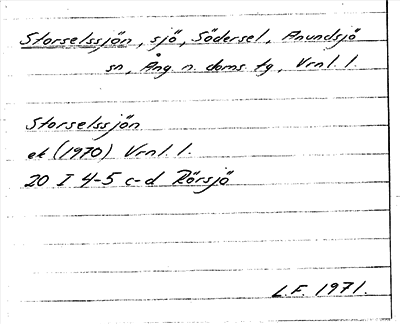 Storselssjön, sjö, Södersel, Anundsjö
sn, Ång n. doms. tg, Vrnl. l.
Storselssjön
ek (1970) Vrnl. l.
20 I 4-5 c-d Rörsjö
L.F. 1971.